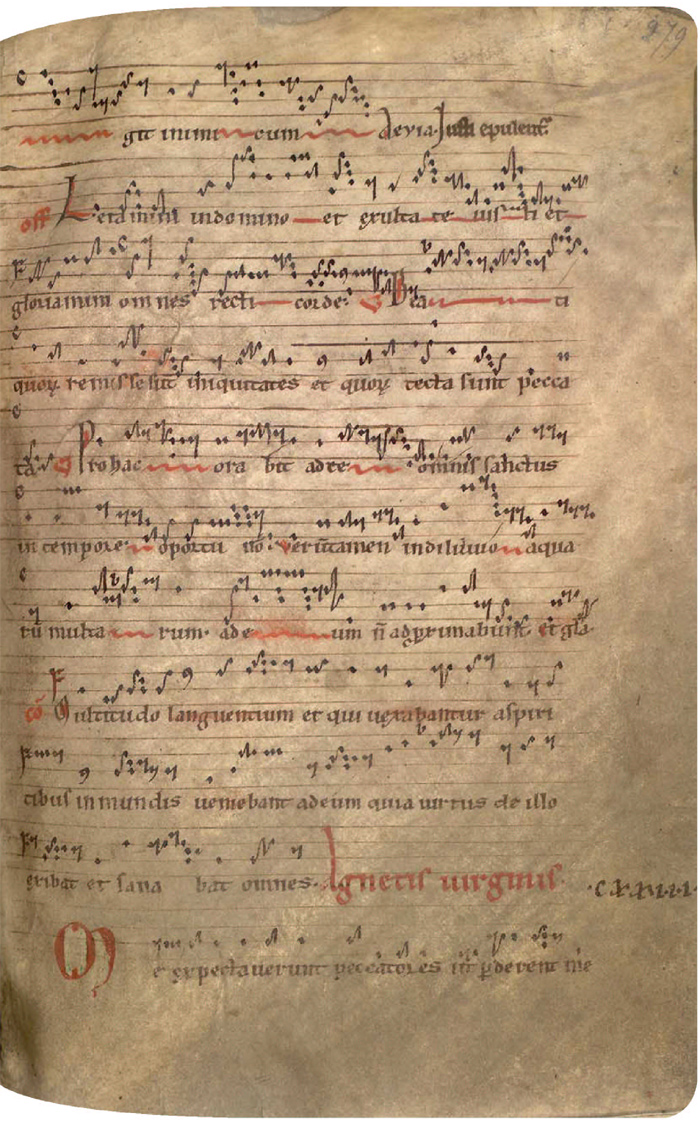 279
git inimi cum Aevia Justi epulent
off Letamini in domino et exulta te iusti et
gloriamini omnes recti corde. V Bea ti
quor remisse sut iniquitates et quor tecta sunt pecca
ta. V Pro hac ora bit ad te omnis sanctus
in tempore oportu no. Verutamen in diluuio aqua
ru multa rum. ad e um n approximabunt. et gla
co Multitudo languentium et qui uexabantur aspiri
tibus inmundis ueniebant ad eum quia uirtus de illo
exibat et sana bat omnes. Agnetis uirginis. cxxuiii.
Me expectauerunt peccatores ut pderent me